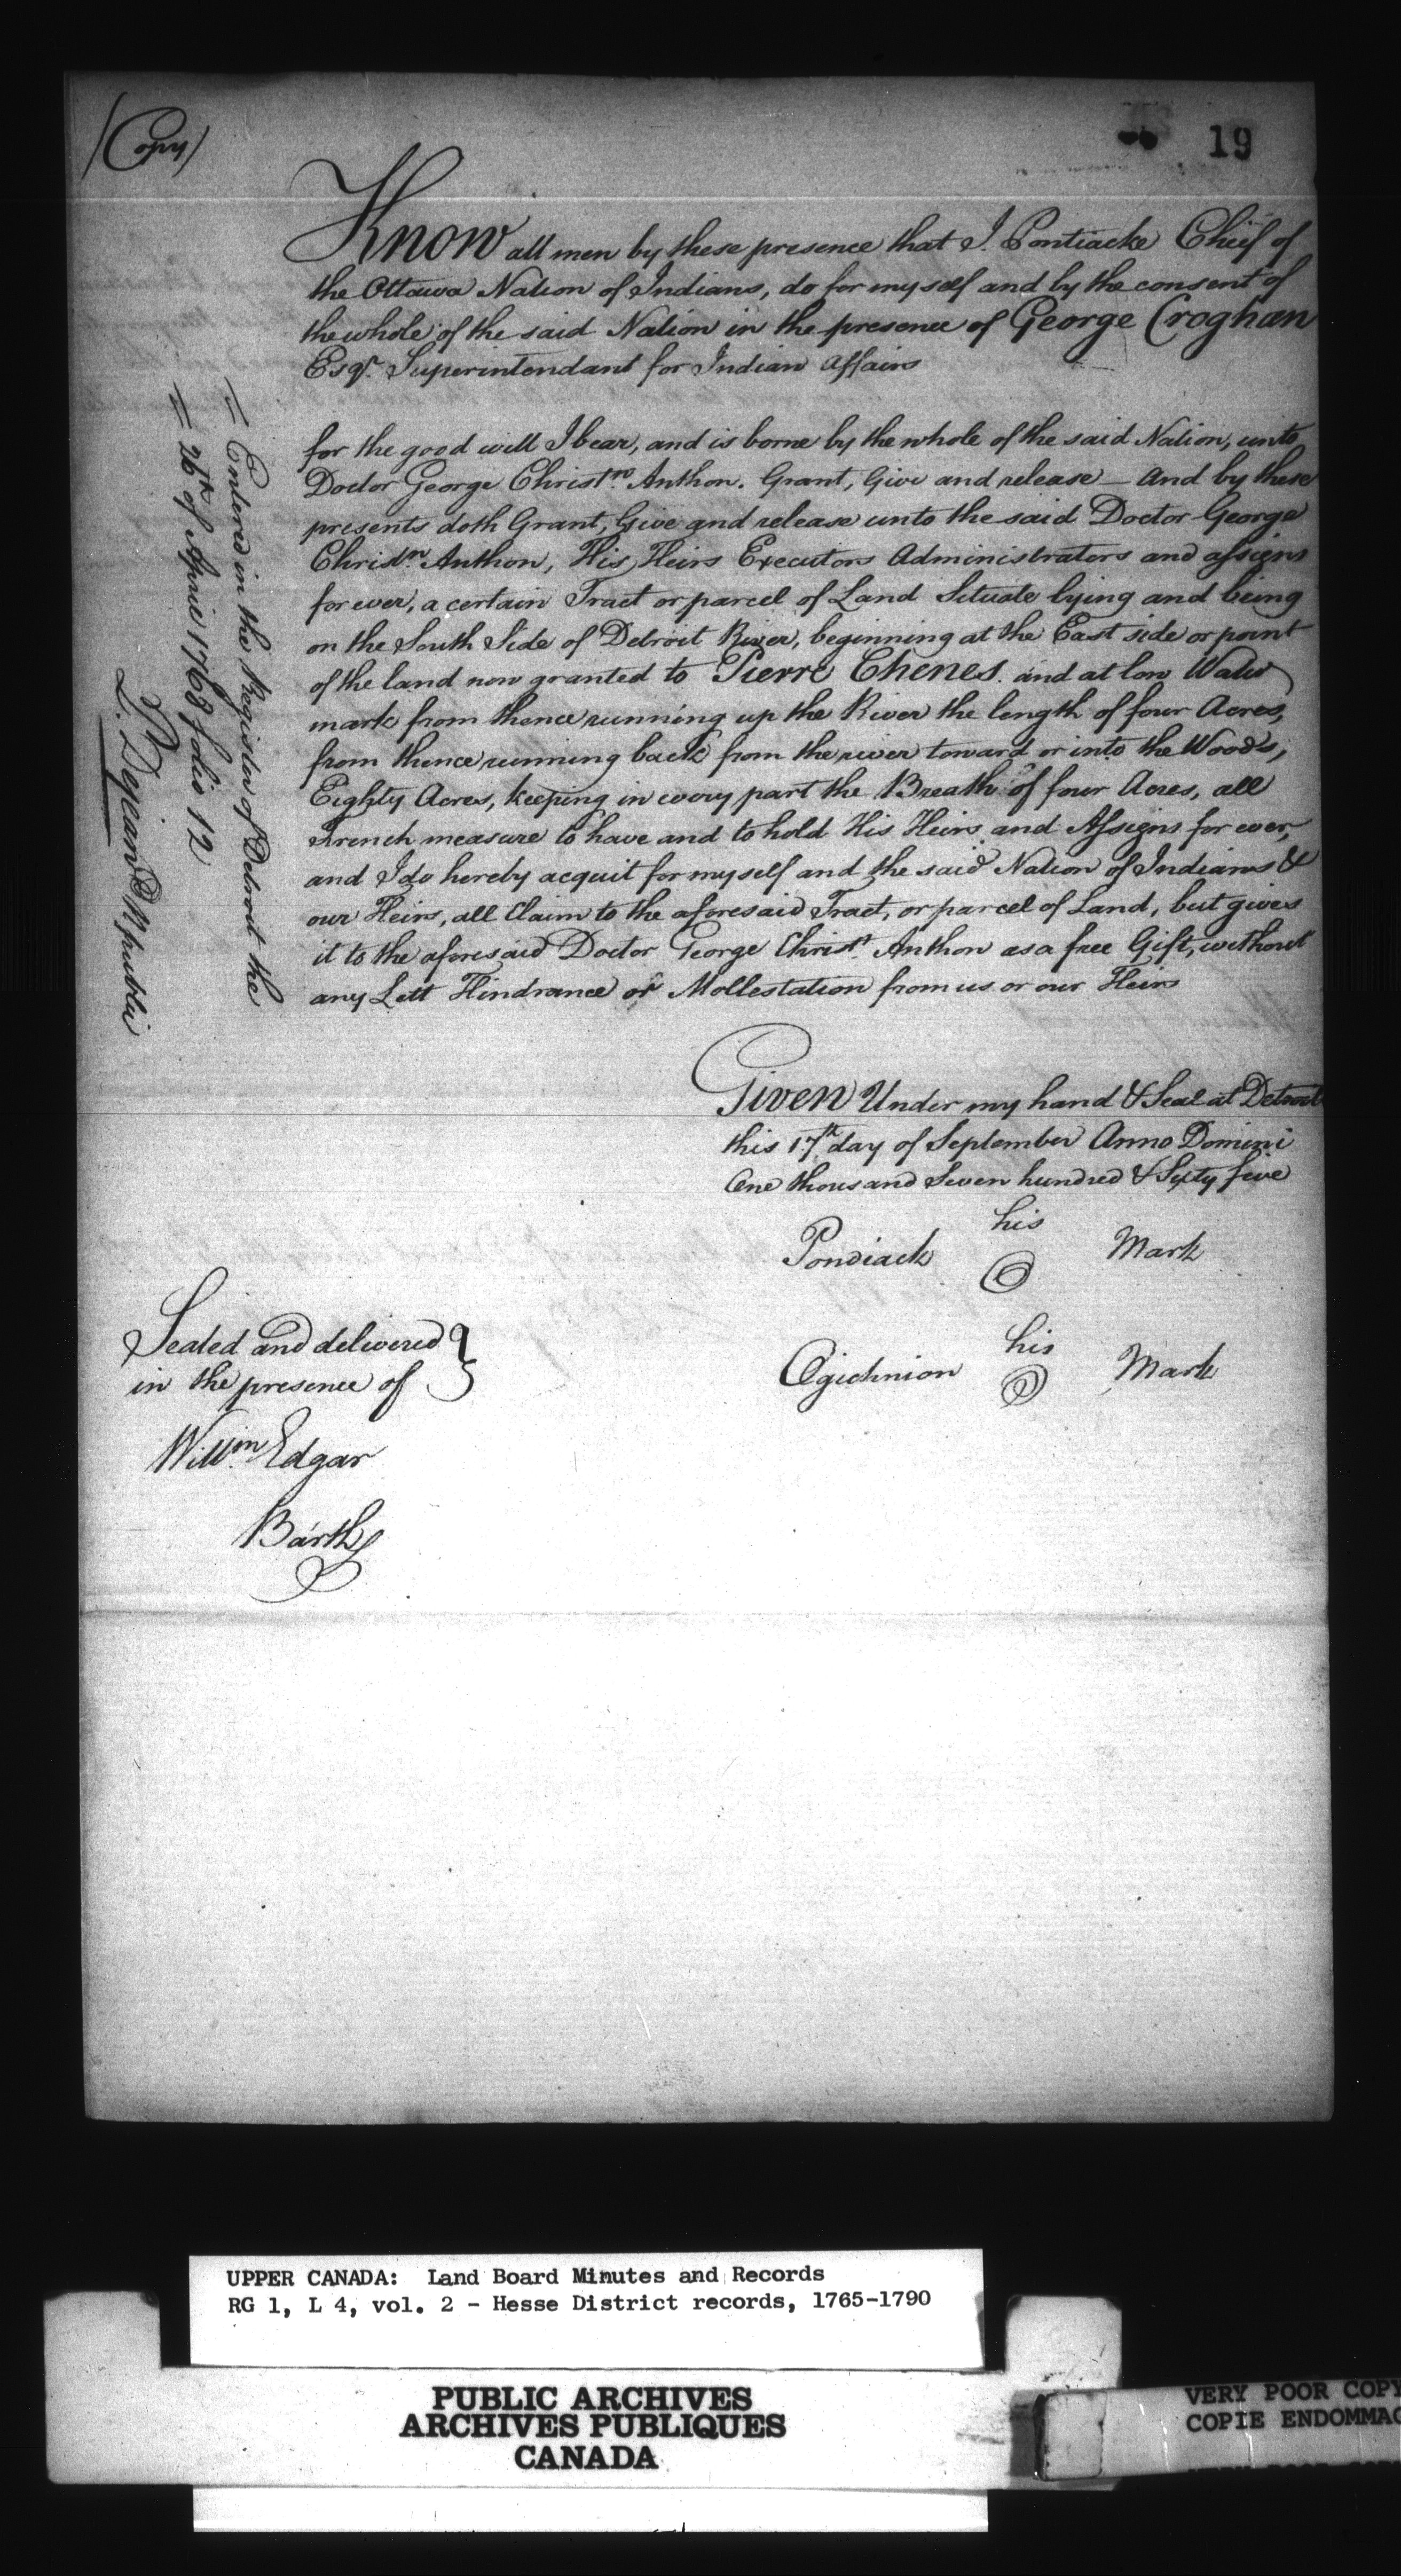 (Copy)
19
Know all men by these presence that I. Pontiacke Chief of
the Ottawa Nation of Indians, do for myself and by the consent of
the whole of the said Nation in the presence of George Croghan
Esqr. Superintendant for Indian Affairs
for the good will I bear, and is borne by the whole of the said Nation, unto
Doctor George Christn. Anthon. Grant, Give and release — And by these
presents doth Grant, Give and release unto the said Doctor George
Christn. Anthon, His Heirs Executors Administrators and assigns
for ever, a certain Tract or parcel of Land Situate lying and being
on the South Side of Detroit River, beginning at the East side or point
of the land now granted to Pierre Chenes. and at low Water
mark from thence running up the River the length of four Acres,
from thence running back from the river toward or into the Woods,
Eighty Acres, keeping in every part the Breath of four Acres, all
French measure to have and to hold His Heirs and Assigns for ever,
and I do hereby acquit for myself and the said Nation of Indians &
our Heirs, all Claim to the aforesaid Tract, or parcel of Land, but gives
it to the aforesaid Doctor George Christn. Anthon as a free Gift, without
any Lett Hindrance or Mollestation from us or our Heirs
= Entered in the Register of Detroit the
= 26th of April 1768 folio 12
P. Dejean N publi
Given Under my hand & Seal at Detroit
this 17th day of September Anno Domini
One thousand Seven hundred & Sixty five
his
Pondiack Mark
his
Ogichnion Mark
Sealed and delivered
in the presence of
Willm. Edgar
Barth
UPPER CANADA: Land Board Minutes and Records
RG 1, L 4, vol. 2 - Hesse District records, 1765-1790
PUBLIC ARCHIVES
ARCHIVES PUBLIQUES
CANADA
VERY POOR COPY
COPIE ENDOMMAG